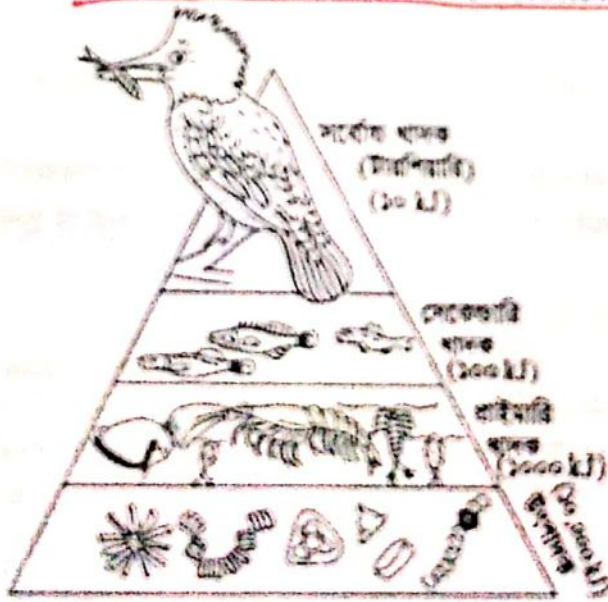 সর্বোচ্চ খাদক
(টারশিয়ারি)
(১০ kJ)
সেকেন্ডারি
খাদক
(১০০ kJ)
প্রাইমারি
খাদক
(১০০০ kJ)
উৎপাদক
(১০,০০০ kJ)